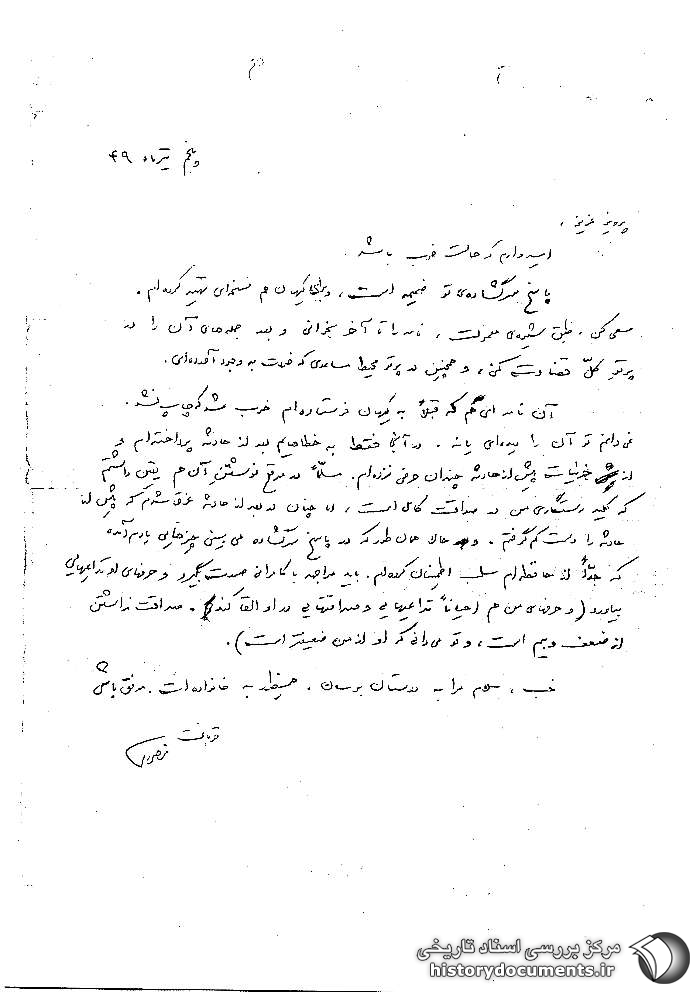 پنجم تیرماه ۴۹
پرویز عزیز ،
امیدوارم که حالت خوب باشد .
پاسخ سرگشاده‌ی تو ضمیمه است ، و برای کیهان هم نسخه‌ای تهیه کرده‌ام .
سعی کن ، طبق شیوه‌ی معمولت ، نامه را تا آخر بخوانی و بعد جمله‌های آن را در
پرتو کلّ قضاوت کنی ، و همچنین در پرتو محیط مساعدی که خودت به وجود آورده‌ای .
آن نامه ای هم که قبلاً به کیهان فرستاده‌ام خوب شد که چاپ نشد .
نمی‌دانم تو آن را دیده‌ای یا نه . در آنجا فقط به خطاهایم بعد از حادثه پرداخته‌ام و
از جزئیات پیش از حادثه چندان حرفی نزده‌ام . مثلاً در موقع نوشتن آن هم یقین داشتم
که کلید رستگاری من در صداقت کامل است ، اما چنان در بعد از حادثه غرق شدم که پیش از
حادثه را دست کم گرفتم . و حالا همان طور که در پاسخ سرگشاده می بینی چیزهایی یادم آمده
که جداً از حافظه‌ام سلب اطمینان کرده‌ام . باید مواجهه با کامرانی صورت بگیرد و حرفهای او تداعیهایی
بیاورد ( و حرفهای من هم احیاناً تداعیهایی و صداقتهایی در او القا کند ) . صداقت نداشتن
از ضعف و بیم است ، و تو می دانی که او از من ضعیفتر است ) .
خب ، سلام مرا به دوستان برسان ، همینطور به خانواده‌ات . موفق باشی
قربانت
مرکز بررسی اسناد تاریخی
historydocuments.ir